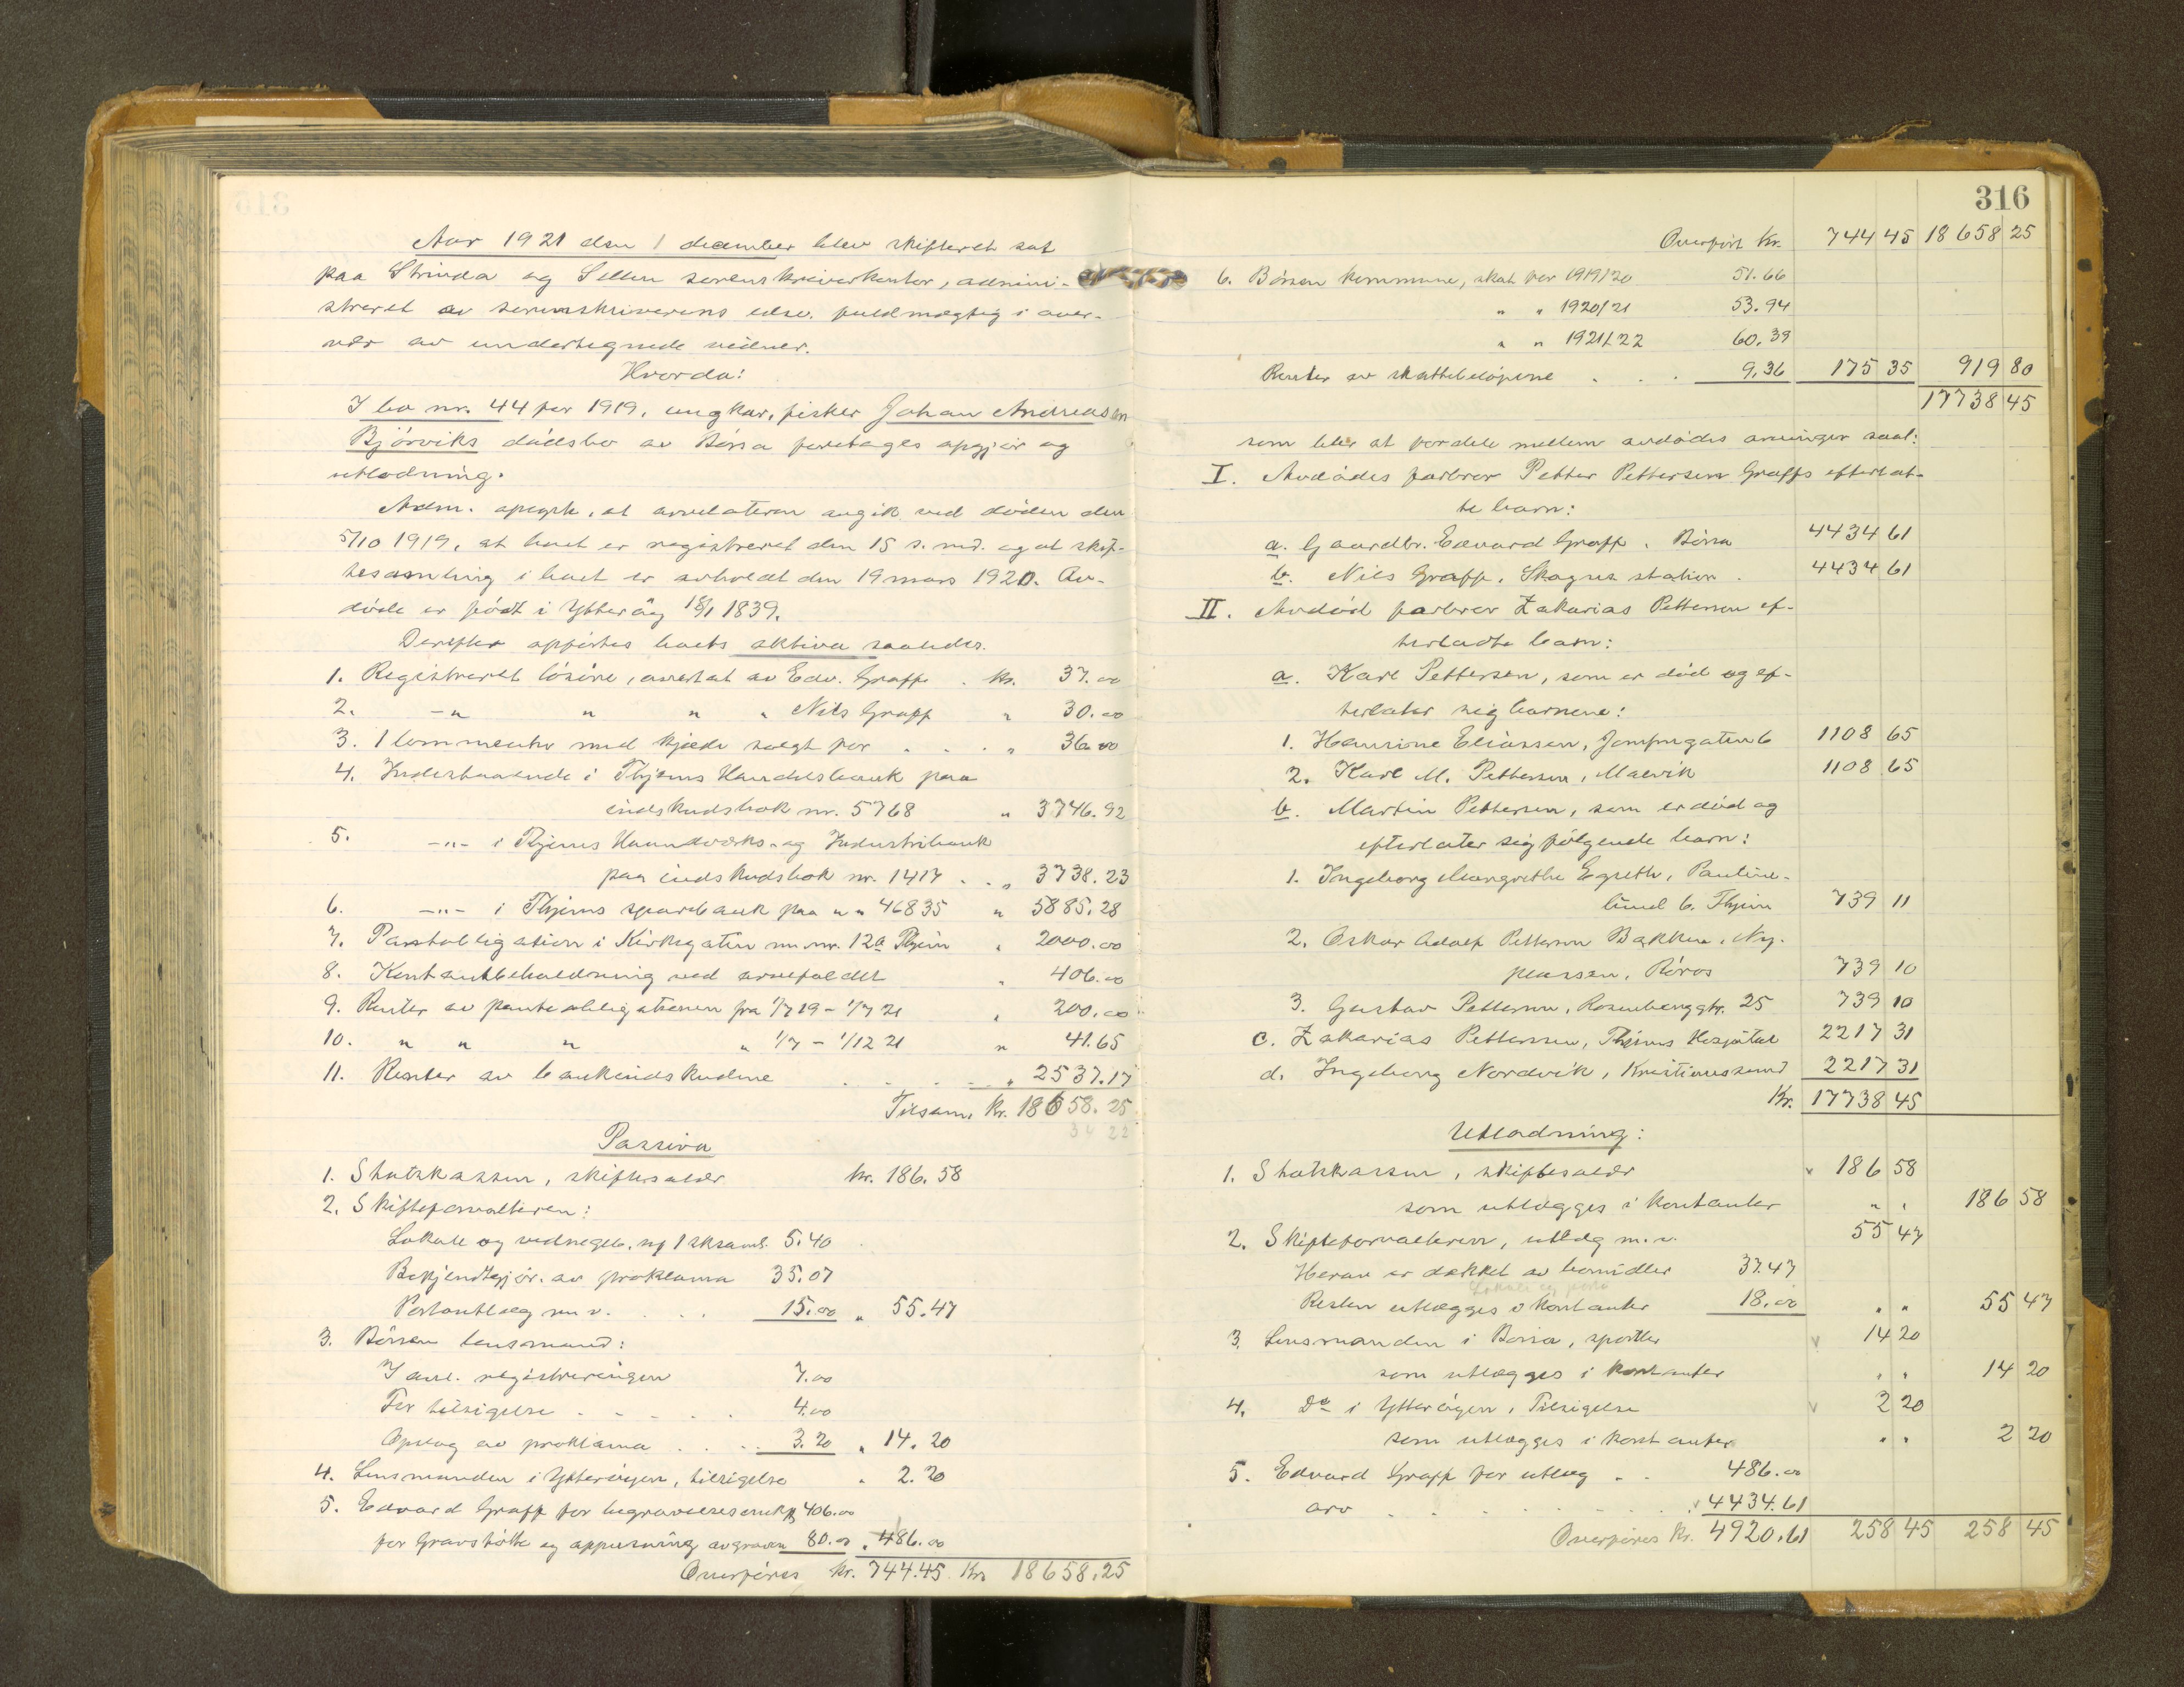 Aar 1921 den 1 december blev skifteret sat
paa Strinda og Selbu sorenskriverkontor, admini-
streret av sorenskriverens edsv. fuldmægtig i over-
vær av undertegnede vidner.
Hvorda:
I bo nr. 44 for 1919, ungkar, fisker Johan Andreassen
Bjørviks dødsbo av Børsa foretages opgjør og
utlodning.
Adm. opgyk, at arvelateren avgik ved døden den
5/10 1919, at boet er registreret den 15 s. md. og at skif-
tesamling i boet er avholdt den 19 mars 1920. Av-
døde er født i Ytterøy 18/1 1839.
Derefter opførtes boets aktiva saaledes.
1. Registreret løsøre, overtat av Edv. Graff . kr. 37.00
2. -"- " " " Nils Graff " 30.00
3. 1 lommeuhr med kjæde solgt for . . . " 36.00
4. Indestaaende i Thjems Handelsbank paa
indskudsbok nr. 5768 " 3746.92
5. -"- i Thjems Haandværks- og Industribank
paa indskudsbok nr. 1417 . . " 3738.23
6. -"- i Thjems sparebank paa " " 46835 " 5885.28
7. Panteobligation i Kirkegaten m. nr. 12a Thjem " 2000.00
8. Kontantbeholdning ved arvefaldet " 406.00
9. Renter av panteobligationen fra 1/7 19 - 1/7 21 " 200.00
10. " " " " 1/7 - 1/12 21 " 41.65
11. Renter av bankindskudene . . . . " 2537.17
Tilsam. kr. 18658.25
34 22
Passiva
1. Statskassen, skiftesaler kr. 186.58
2. Skifteforvalteren:
Lokale og vidnegeb. 1 sksaml. 5.40
Bekjendtgjør. av proklama 35.07
Portoutlæg m. v. . . . 15.00 " 55.47
3. Børsen lensmand:
I anl. registreringen 7.00
For tilsigelse . . . . . 4.00
Opslag av proklama . . . 3.20 " 14.20
4. Lensmanden i Ytterøyen, tilsigelse " 2.20
5. Edvard Graff for begravelsesomk. 406.00
for Gravstøtte og oppusning av graven 80.00 " 486.00
Overføres kr. 744.45 Kr. 18658.25
316
Overført kr. 744 45 18658 25
6. Børsen kommune, skat for 1919/20 51.66
" " 1920/21 53.94
" " 1921/22 60.39
Renter av skattebeløpene . . . 9.36 175 35 919 80
17738 45
som blir at fordele mellem avdødes arvinger saal:
I. Avdødes farbror Petter Pettersen Graffs efterlat-
te barn:
a. Gaardbr. Edvard Graff, Børsa 4434 61
b. Nils Graff, Skognes station . 4434 61
II. Avdød farbror Zakarias Pettersen ef-
terladte barn:
a. Karl Pettersen, som er død og ef-
terlater sig barnene:
1. Hansine Eliassen, Jomfrugaten 6 1108 65
2. Karl M. Pettersen, Malvik 1108 65
b. Martin Pettersen, som er død og
efterlater sig følgende barn:
1. Ingeborg Margrethe Egseth, Pauline-
lund 6. Thjem 739 11
2. Oskar Adolf Pettersen Bakken, Ny-
plassen, Røros 739 10
3. Gustav Pettersen, Rosenborggt. 25 739 10
c. Zakarias Pettersen, Thjems Hospital 2217 31
d. Ingeborg Nordvik, Kristianssund 2217 31
Kr. 17738 45
Utlodning:
1. Statskassen, skiftesaler 186 58
som utlægges i kontanter " " 186 58
2. Skifteforvalteren, utlæg m. v. 55 47
Herav er dækket av bomidler 37.47
Lokale og porto
Resten utlægges i kontanter 18.00 " " 55 47
3. Lensmanden i Børsa, sportler 14 20
som utlægges i kontanter " " 14 20
4. Do i Ytterøyen, Tilsigelse 2 20
som utlægges i kontanter " " 2 20
5. Edvard Graff for utlæg . . 486.00
arv . . . . . . . 4434.61
Overføres kr. 4920.61 258 45 258 45